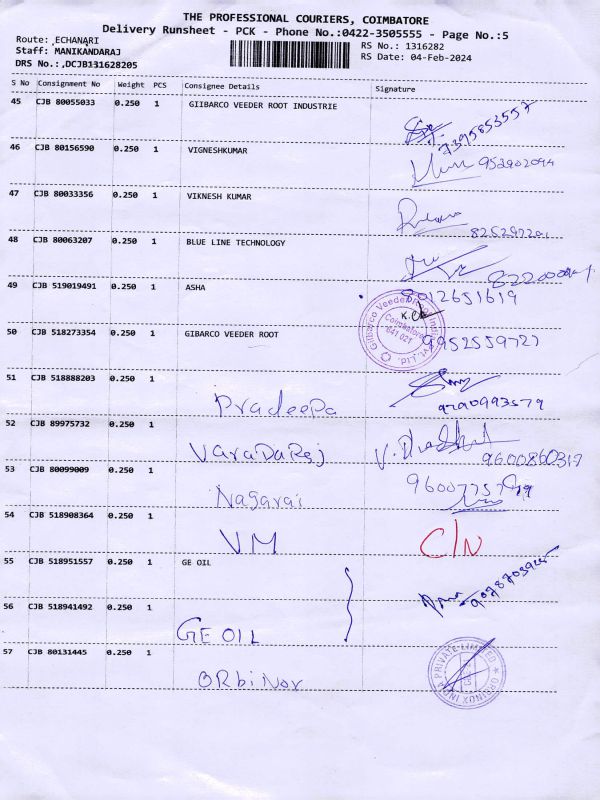 THE PROFESSIONAL COURIERS, COIMBATORE
Delivery Runsheet - PCK - Phone No.:0422-3505555 - Page No.:5
Route: ECHANARI
Staff: MANIKANDARAJ
DRS No.:,DCJB131628205
RS No.: 1316282
RS Date: 04-Feb-2024
S No Consignment No Weight PCS Consignee Details Signature
45 CJB 80055033 0.250 1 GIIBARCO VEEDER ROOT INDUSTRIE
7395853557
46 CJB 80156590 0.250 1 VIGNESHKUMAR
47 CJB 80033356 0.250 1 VIKNESH KUMAR
48 CJB 80063207 0.250 1 BLUE LINE TECHNOLOGY
49 CJB 519019491 0.250 1 ASHA 8012651619
50 CJB 518273354 0.250 1 GIBARCO VEEDER ROOT 9952559727
Coimbatore
641 021
51 CJB 518888203 0.250 1 Pradeepa
9790993579
52 CJB 89975732 0.250 1 VaraDaRaj
9600860319
53 CJB 80099009 0.250 1 Nagarai
54 CJB 518908364 0.250 1 VM C/N
55 CJB 518951557 0.250 1 GE OIL
56 CJB 518941492 0.250 1 GE OIL
57 CJB 80131445 0.250 1 ORbiNox
PRIVATE LIMITED ORBINOX INDIA